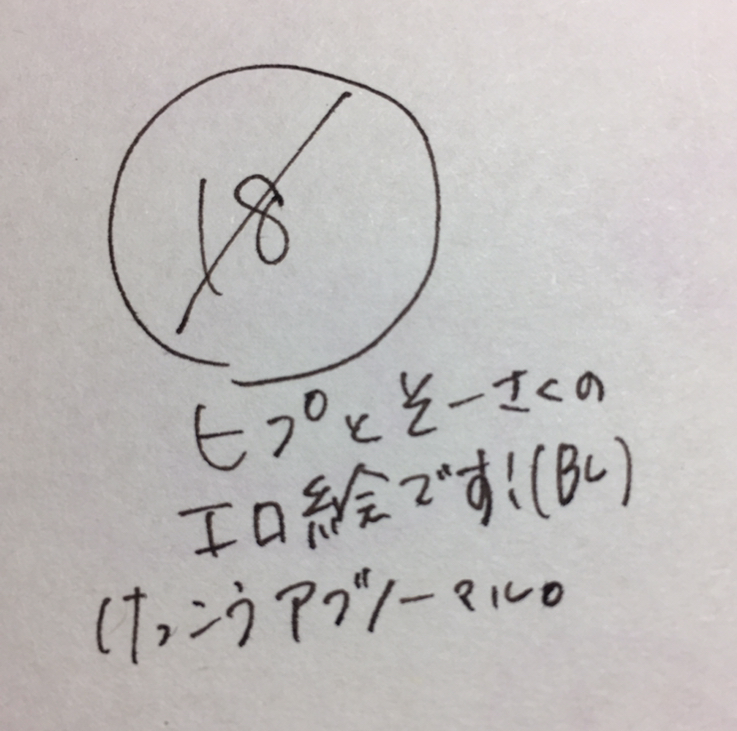 18
ヒプとそーさくの
エロ絵です!(BL)
けっこうアブノーマル。